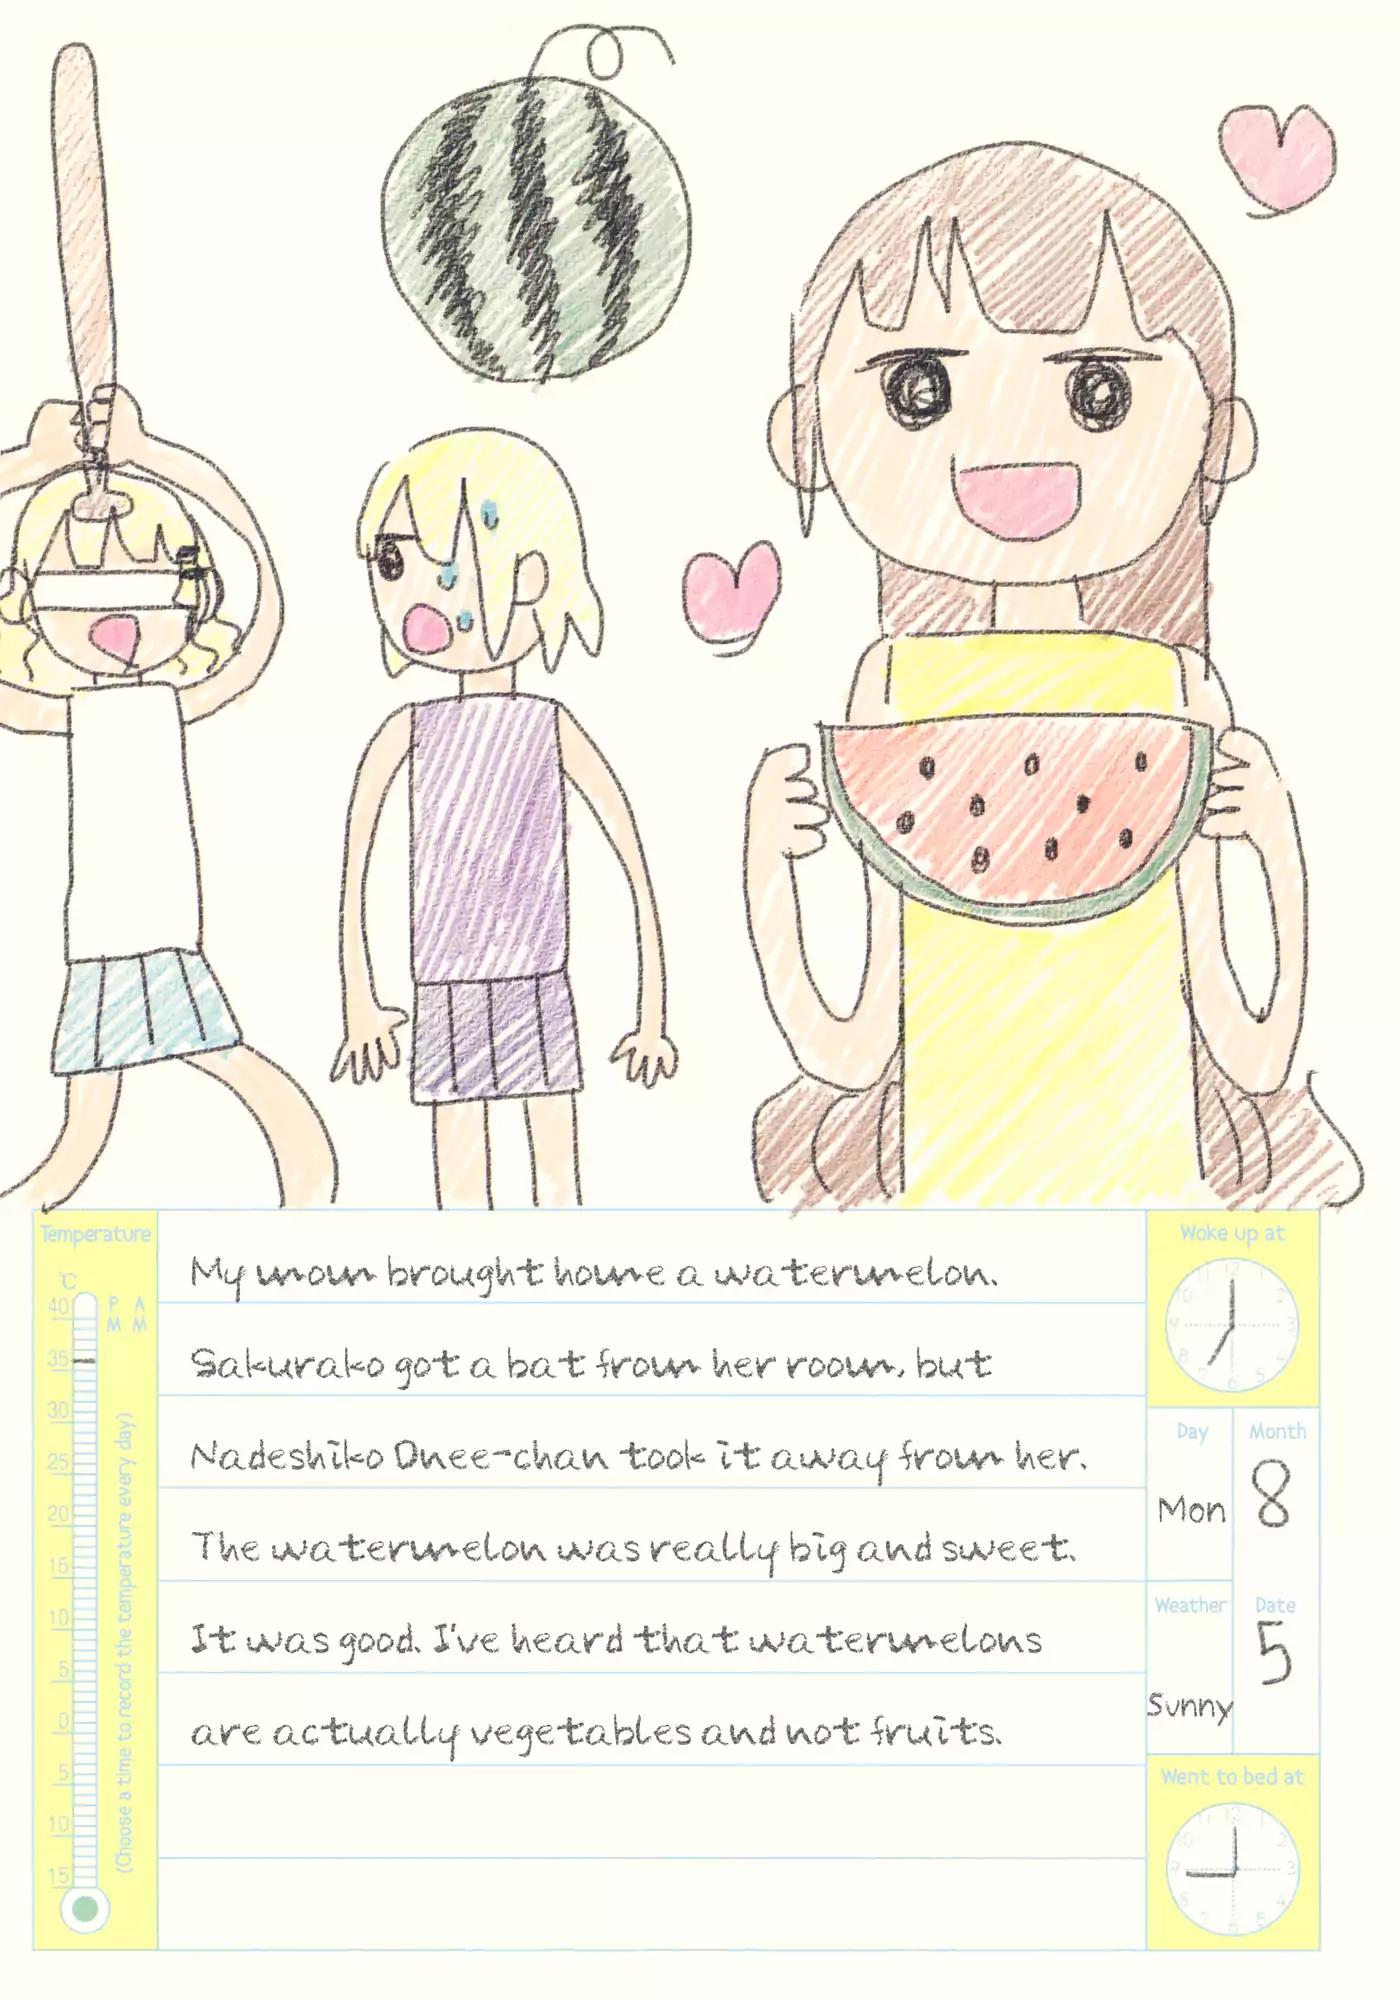 Temperature
℃
P M
A M
40
35
30
25
20
15
10
5
0
5
10
15
(Choose a time to record the temperature every day)
My mom brought home a watermelon.
Sakurako got a bat from her room, but
Nadeshiko Onee-chan took it away from her.
The watermelon was really big and sweet.
It was good. I've heard that watermelons
are actually vegetables and not fruits.
Woke up at
Day
Mon
Month
8
Weather
Sunny
Date
5
Went to bed at